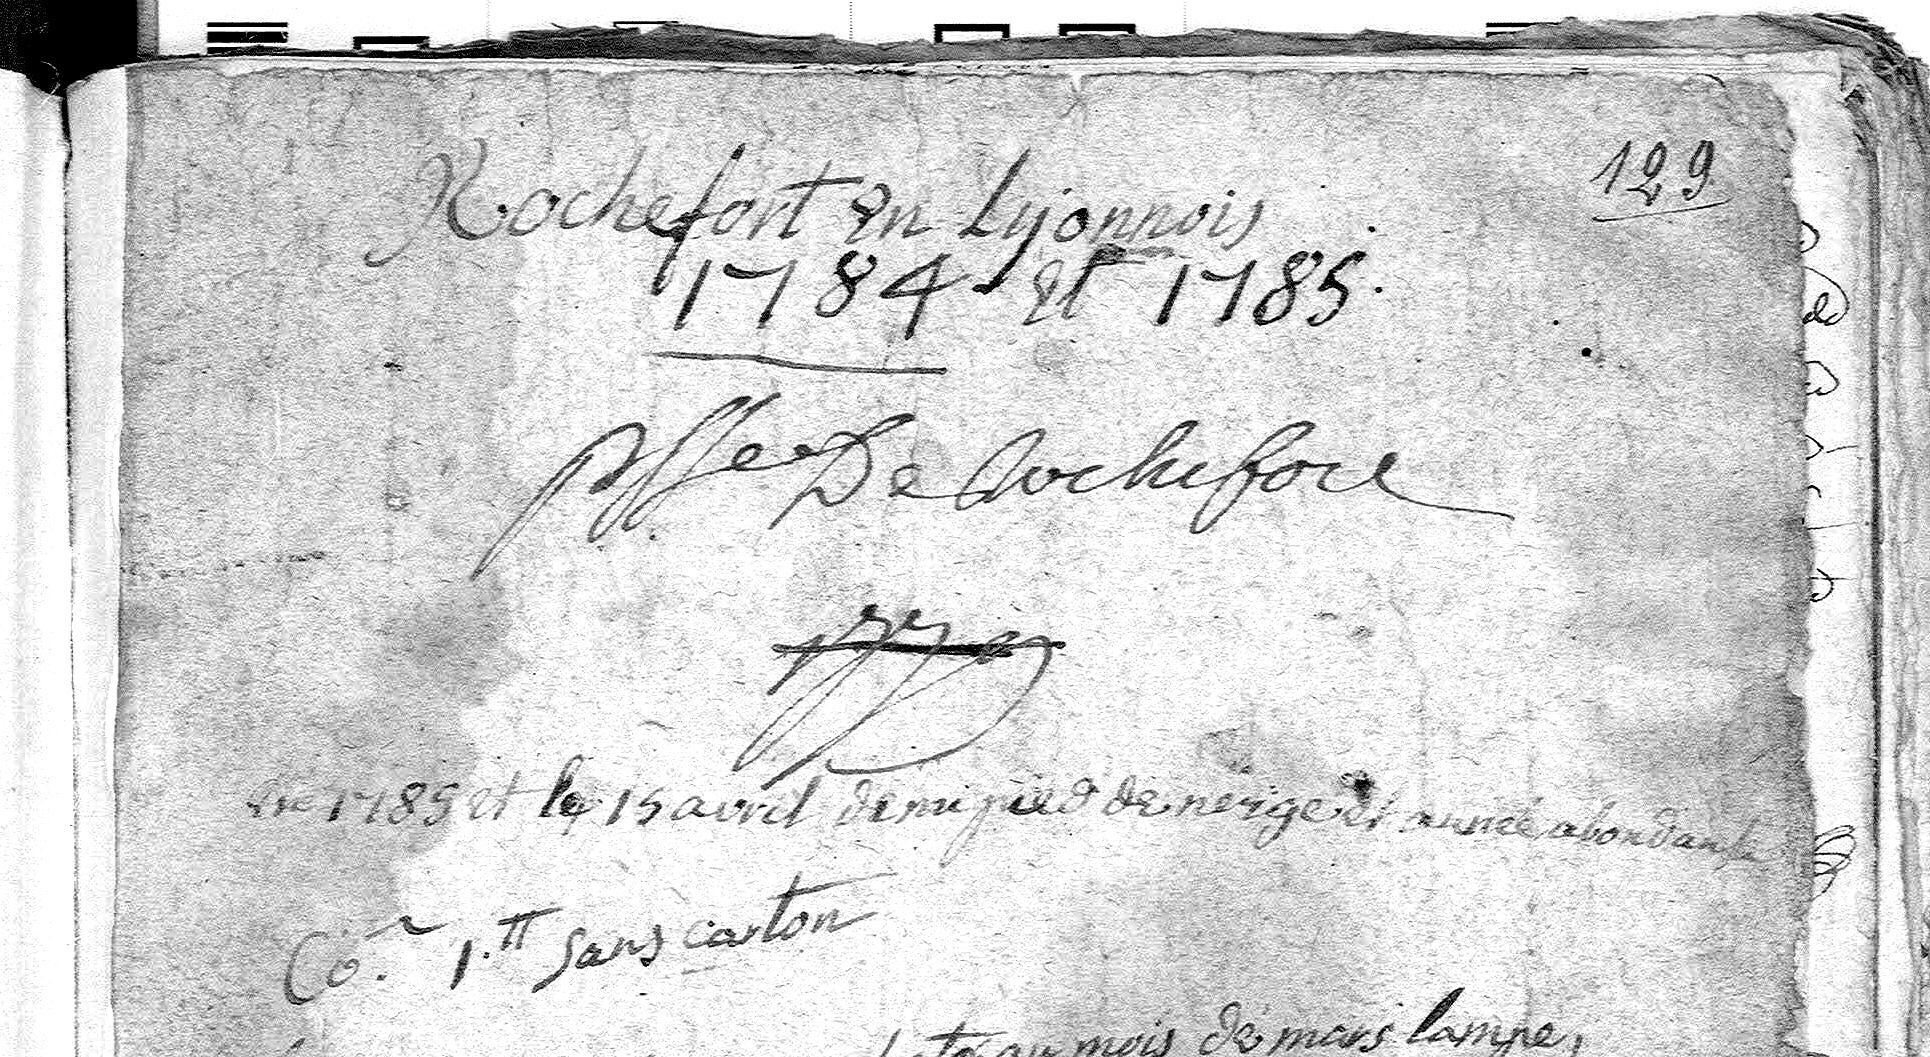 129
Rochefort en Lyonnois
1784 et 1785.
De Rochefort
en 1785 et le 15 avril demi pied de neige et année abondante
Co. 1.tt sans carton
au mois de mars lampe,